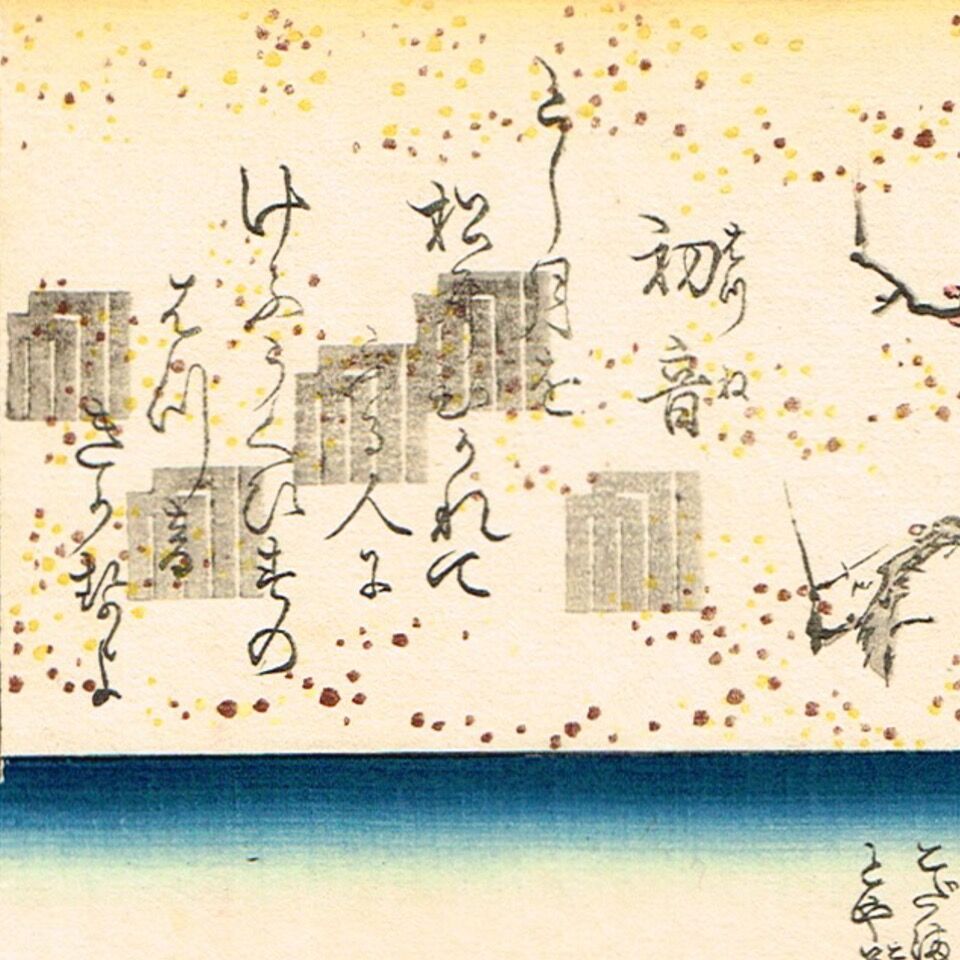 初音
はつね
とし月を
松にひかれて
ふる人に
けふうぐひすの
はつ音
きかせよ